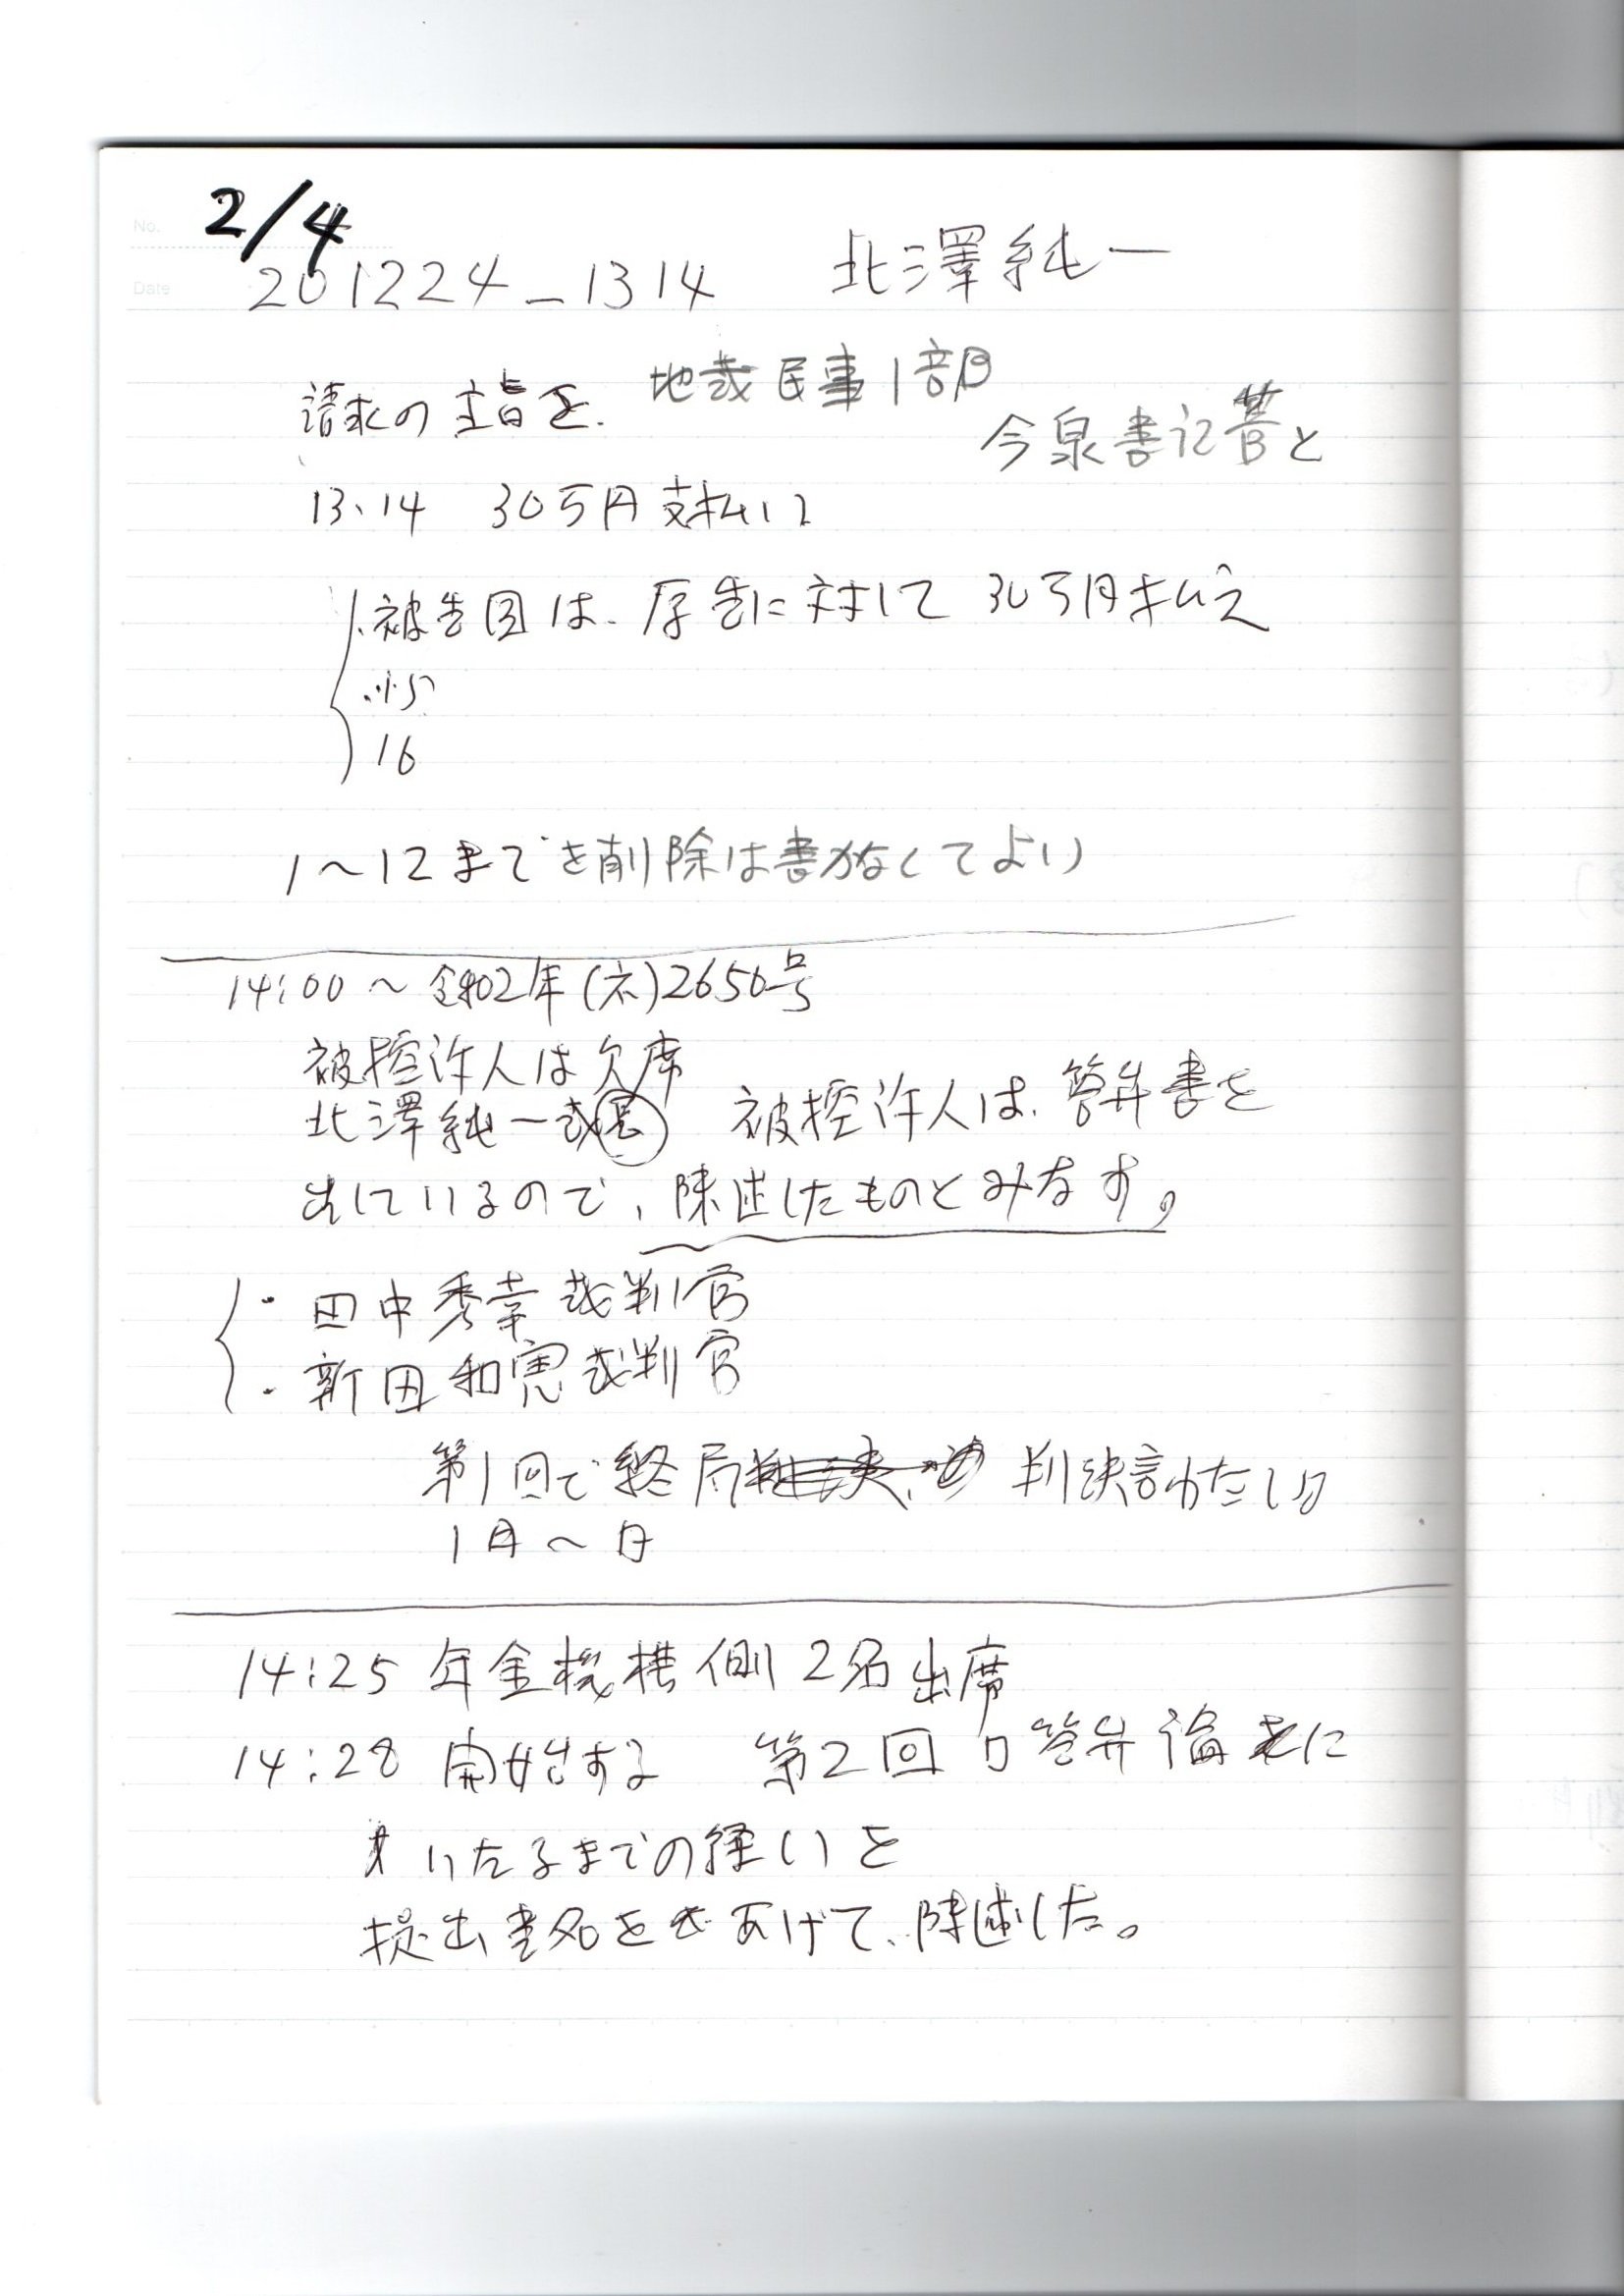 No.
2/4
Date
201224_1314 北澤純一
請求の主旨を、 地裁民事1部
今泉書記官と
13、14 30万円支払い
1、被告国は、原告に対して 30万円払え
16
1〜12までを削除は書かなくてよい
14:00〜令和2年(ネ)2650号
被控訴人は欠席
北澤純一裁長 被控訴人は、答弁書を
出しているので、陳述したものとみなす。
・田中秀幸裁判官
・新田和憲裁判官
第1回で終局 判決言わたし
1月〜日
14:25 年金機構側2名出席
14:28 開始する 第2回口答弁論に
いたるまでの経いを
提出書名をあげて、陳述した。